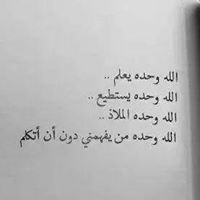 الله وحده يعلم ..
الله وحده يستطيع ..
الله وحده الملاذ ..
الله وحده من يفهمني دون أن أتكلم